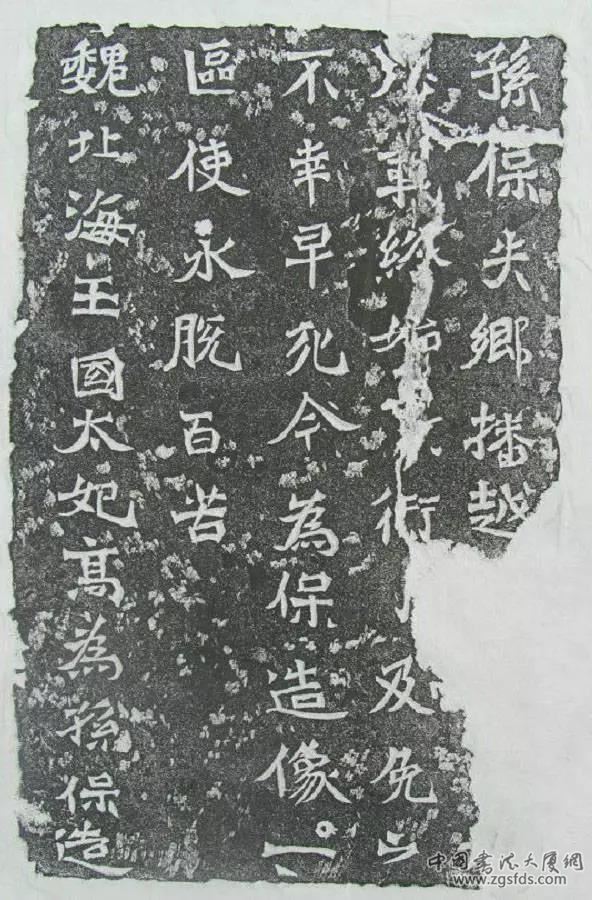 孫保失鄉播越
軍及免
不幸早死今為保造像一
區使永脫百苦
魏北海王國太妃高為孫保造
中國書法大厦網
www.zgsfds.com